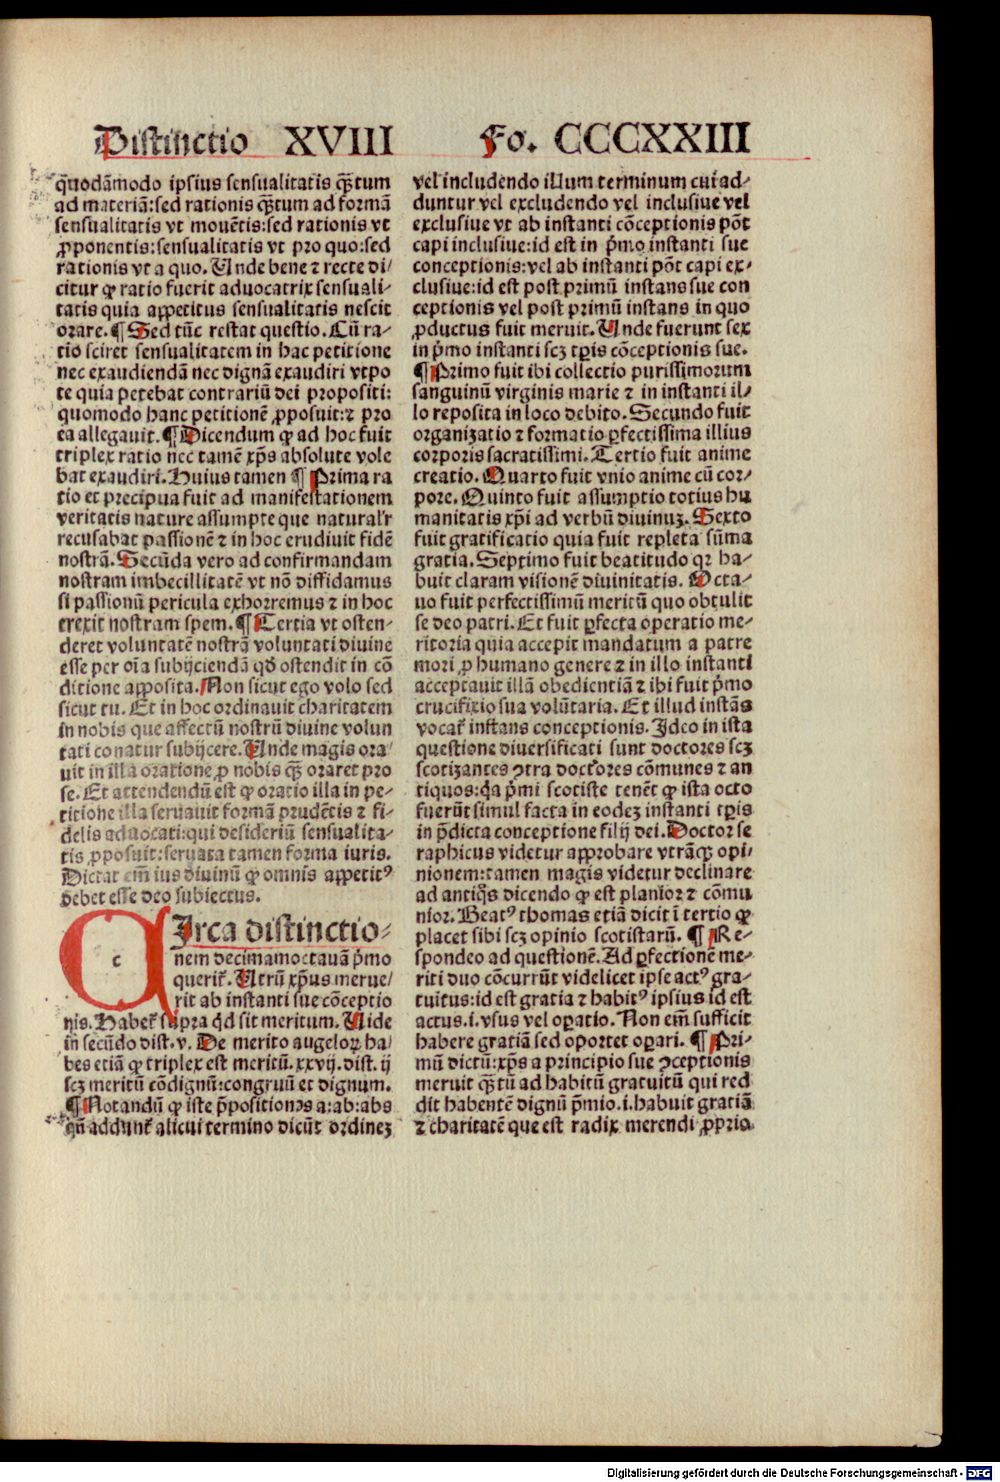 Distinctio XVIII Fo. CCCXXIII
q̄uodāmodo ipsius sensualitatis q̄ꝫtum
ad materiā:sed rationis q̄ꝫtum ad formā
sensualitatis vt mouētis:sed rationis vt
ꝓponentis:sensualitatis vt pro quo:sed
rationis vt a quo. Unde bene ⁊ recte di⸗
citur ꝙ ratio fuerit aduocatrix sensuali⸗
tatis quia appetitus sensualitatis nescit
orare. ¶ Sed tūc restat questio. Cū ra⸗
tio sciret sensualitatem in hac petitione
nec exaudiendā nec dignā exaudiri vtpo
te quia petebat contrariū dei propositi:
quomodo hanc petitionē ꝓposuit:⁊ pro
ea allegauit. ¶ Dicendum ꝙ ad hoc fuit
triplex ratio nec tamē xp̄s absolute vole
bat exaudiri. Huius tamen ¶ Prima ra
tio et precipua fuit ad manifestationem
veritatis nature assumpte que natural'r
recusabat passionē ⁊ in hoc erudiuit fidē
nostrā. Secūda vero ad confirmandam
nostram imbecillitatē vt nō diffidamus
si passionū pericula exhorremus ⁊ in hoc
erexit nostram spem. ¶ Tertia vt osten⸗
deret voluntatē nostrā voluntati diuine
esse per oīa subijciendā qd̄ ostendit in cō
ditione apposita. Non sicut ego volo sed
sicut tu. Et in hoc ordinauit charitatem
in nobis que affectū nostrū diuine volun
tati conatur subijcere. Unde magis ora⸗
uit in illa oratione ꝓ nobis q̄ꝫ oraret pro
se. Et attendendū est ꝙ oratio illa in pe⸗
titione illa seruauit formā prudētis ⁊ fi⸗
delis aduocati:qui desideriū sensualita⸗
tis ꝓposuit:seruata tamen forma iuris.
Dictat em̄ ius diuinū ꝙ omnis appetit⁹
debet esse deo subiectus.
c
CIrca distinctio⸗
nem decimamoctauā p̄mo
querit᷑. Utrū xp̄us merue⸗
rit ab instanti sue cōceptio
nis. Habet᷑ supra qd̄ sit meritum. Uide
in secūdo dist. v. De merito angeloꝝ ha⸗
bes etiā ꝙ triplex est meritū. xxvij. dist. ij
scꝫ meritū cōdignū:congruū et dignum.
¶ Notandū ꝙ iste p̄positiones a:ab:abs
qn̄ addunt᷑ alicui termino dicūt ordinez
vel includendo illum terminum cui ad⸗
duntur vel excludendo vel inclusiue vel
exclusiue vt ab instanti cōceptionis pōt
capi inclusiue:id est in p̄mo instanti sue
conceptionis:vel ab instanti pōt capi ex⸗
clusiue:id est post primū instans sue con
ceptionis vel post primū instans in quo
ꝓductus fuit meruit. Unde fuerunt sex
in p̄mo instanti scꝫ tp̄is cōceptionis sue.
¶ Primo fuit ibi collectio purissimorum
sanguinū virginis marie ⁊ in instanti il⸗
lo reposita in loco debito. Secundo fuit
organizatio ⁊ formatio ꝑfectissima illius
corporis sacratissimi. Tertio fuit anime
creatio. Quarto fuit vnio anime cū cor⸗
pore. Quinto fuit assumptio totius hu
manitatis xp̄i ad verbū diuinuꝫ. Sexto
fuit gratificatio quia fuit repleta sūma
gratia. Septimo fuit beatitudo qꝛ ha⸗
buit claram visionē diuinitatis. Octa⸗
uo fuit perfectissimū meritū quo obtulit
se deo patri. Et fuit ꝑfecta operatio me⸗
ritoria quia accepit mandatum a patre
mori ꝓ humano genere ⁊ in illo instanti
acceptauit illā obedientiā ⁊ ibi fuit p̄mo
crucifixio sua volūtaria. Et illud instās
vocat᷑ instans conceptionis. Ideo in ista
questione diuersificati sunt doctores scꝫ
scotizantes ꝯtra doctores cōmunes ⁊ an
tiquos:q̄a p̄mi scotiste tenēt ꝙ ista octo
fuerūt simul facta in eodeꝫ instanti tp̄is
in p̄dicta conceptione filij dei. Doctor se
raphicus videtur approbare vtrāqꝫ opi⸗
nionem:tamen magis videtur declinare
ad antiq̄s dicendo ꝙ est planior ⁊ cōmu
nior. Beat⁹ thomas etiā dicit ī tertio ꝙ
placet sibi scꝫ opinio scotistarū. ¶ Re⸗
spondeo ad questionē. Ad ꝑfectionē me⸗
riti duo cōcurrūt videlicet ipse act⁹ gra⸗
tuitus:id est gratia ⁊ habit⁹ ipsius id est
actus.i.vsus vel oꝑatio. Non em̄ sufficit
habere gratiā sed oportet oꝑari. ¶ Pri⸗
mū dictū:xp̄s a principio sue ꝯceptionis
meruit q̄ꝫtū ad habitū gratuitū qui red
dit habentē dignū p̄mio.i.habuit gratiā
⁊ charitatē que est radix merendi ꝓprio
Digitalisierung gefördert durch die Deutsche Forschungsgemeinschaft - DFG